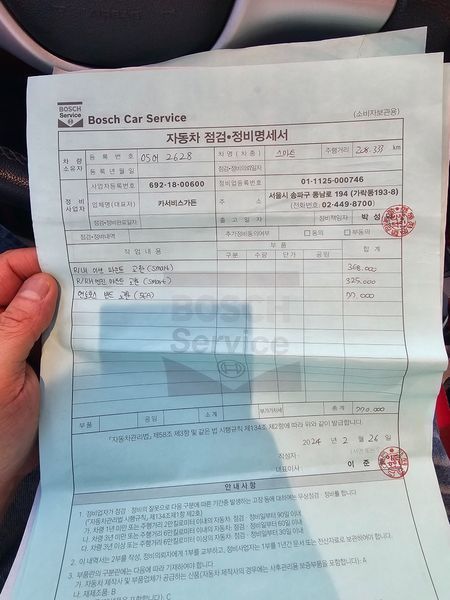 BOSCH
Service
Bosch Car Service
(소비자보관용)
자동차 점검•정비명세서
차량 소유자 등록번호 05어 2628 차명(차종) 스마트 주행거리 208.333 km
등록년월일 점검•정비의뢰일자
정비 사업자 사업자등록번호 692-18-00600 정비업등록번호 01-1125-000746
업체명(대표자) 카서비스가든 주소 서울시 송파구 동남로 194 (가락동193-8)
(전화번호: 02-449-8700)
점검•정비완료일자 출고일자 정비책임자 박성
점검•정비내역 추가정비동의여부 □ 동의 □ 부동의
작업내용 부품 합계
구분 수량 단가 공임
R/LH 마운트 교환 (Smart) 368.000
R/RH 엔진 마운트 교환 (Smart) 325.000
밴드 교환 (5EA) 77.000
BOSCH
Service
부품 공임 소계 부가가치세 총계 770.000
「자동차관리법」제58조 제3항 및 같은 법 시행규칙 제134조 제2항에 따라 위와 같이 발급합니다.
2024 년 2 월 26 일
작성자 :
대표이사 이 준
안내사항
1. 정비업자가 점검 · 정비의 잘못으로 다음 구분에 따른 기간중 발생하는 고장 등에 대하여는 무상점검 · 정비를 합니다
(「자동차관리법 시행규칙」제134조제1항 제2호)
가. 차령 1년 미만 또는 주행거리 2만킬로미터 이내의 자동차, 점검 · 정비일부터 90일 이내
나. 차령 3년 미만 또는 주행거리 6만킬로미터 이내의 자동차, 점검 · 정비일부터 60일 이내
다. 차령 3년 이상 또는 주행거리 6만킬로미터 이상의 자동차, 점검 · 정비일부터 30일 이내
2. 이 내역서는 2부를 작성, 정비의뢰자에게 1부를 교부하고, 정비사업자는 1부를 1년간 문서 또는 전산자료로 보관하여야 합니다.
3. 부품란의 구분란에는 다음에 따라 기재하여야 합니다
가. 자동차 제작사 및 부품업체가 공급하는 신품(자동차 제작사의 경우에는 사후관리용 보증부품을 포함합니다): A
나. 재제조품: B